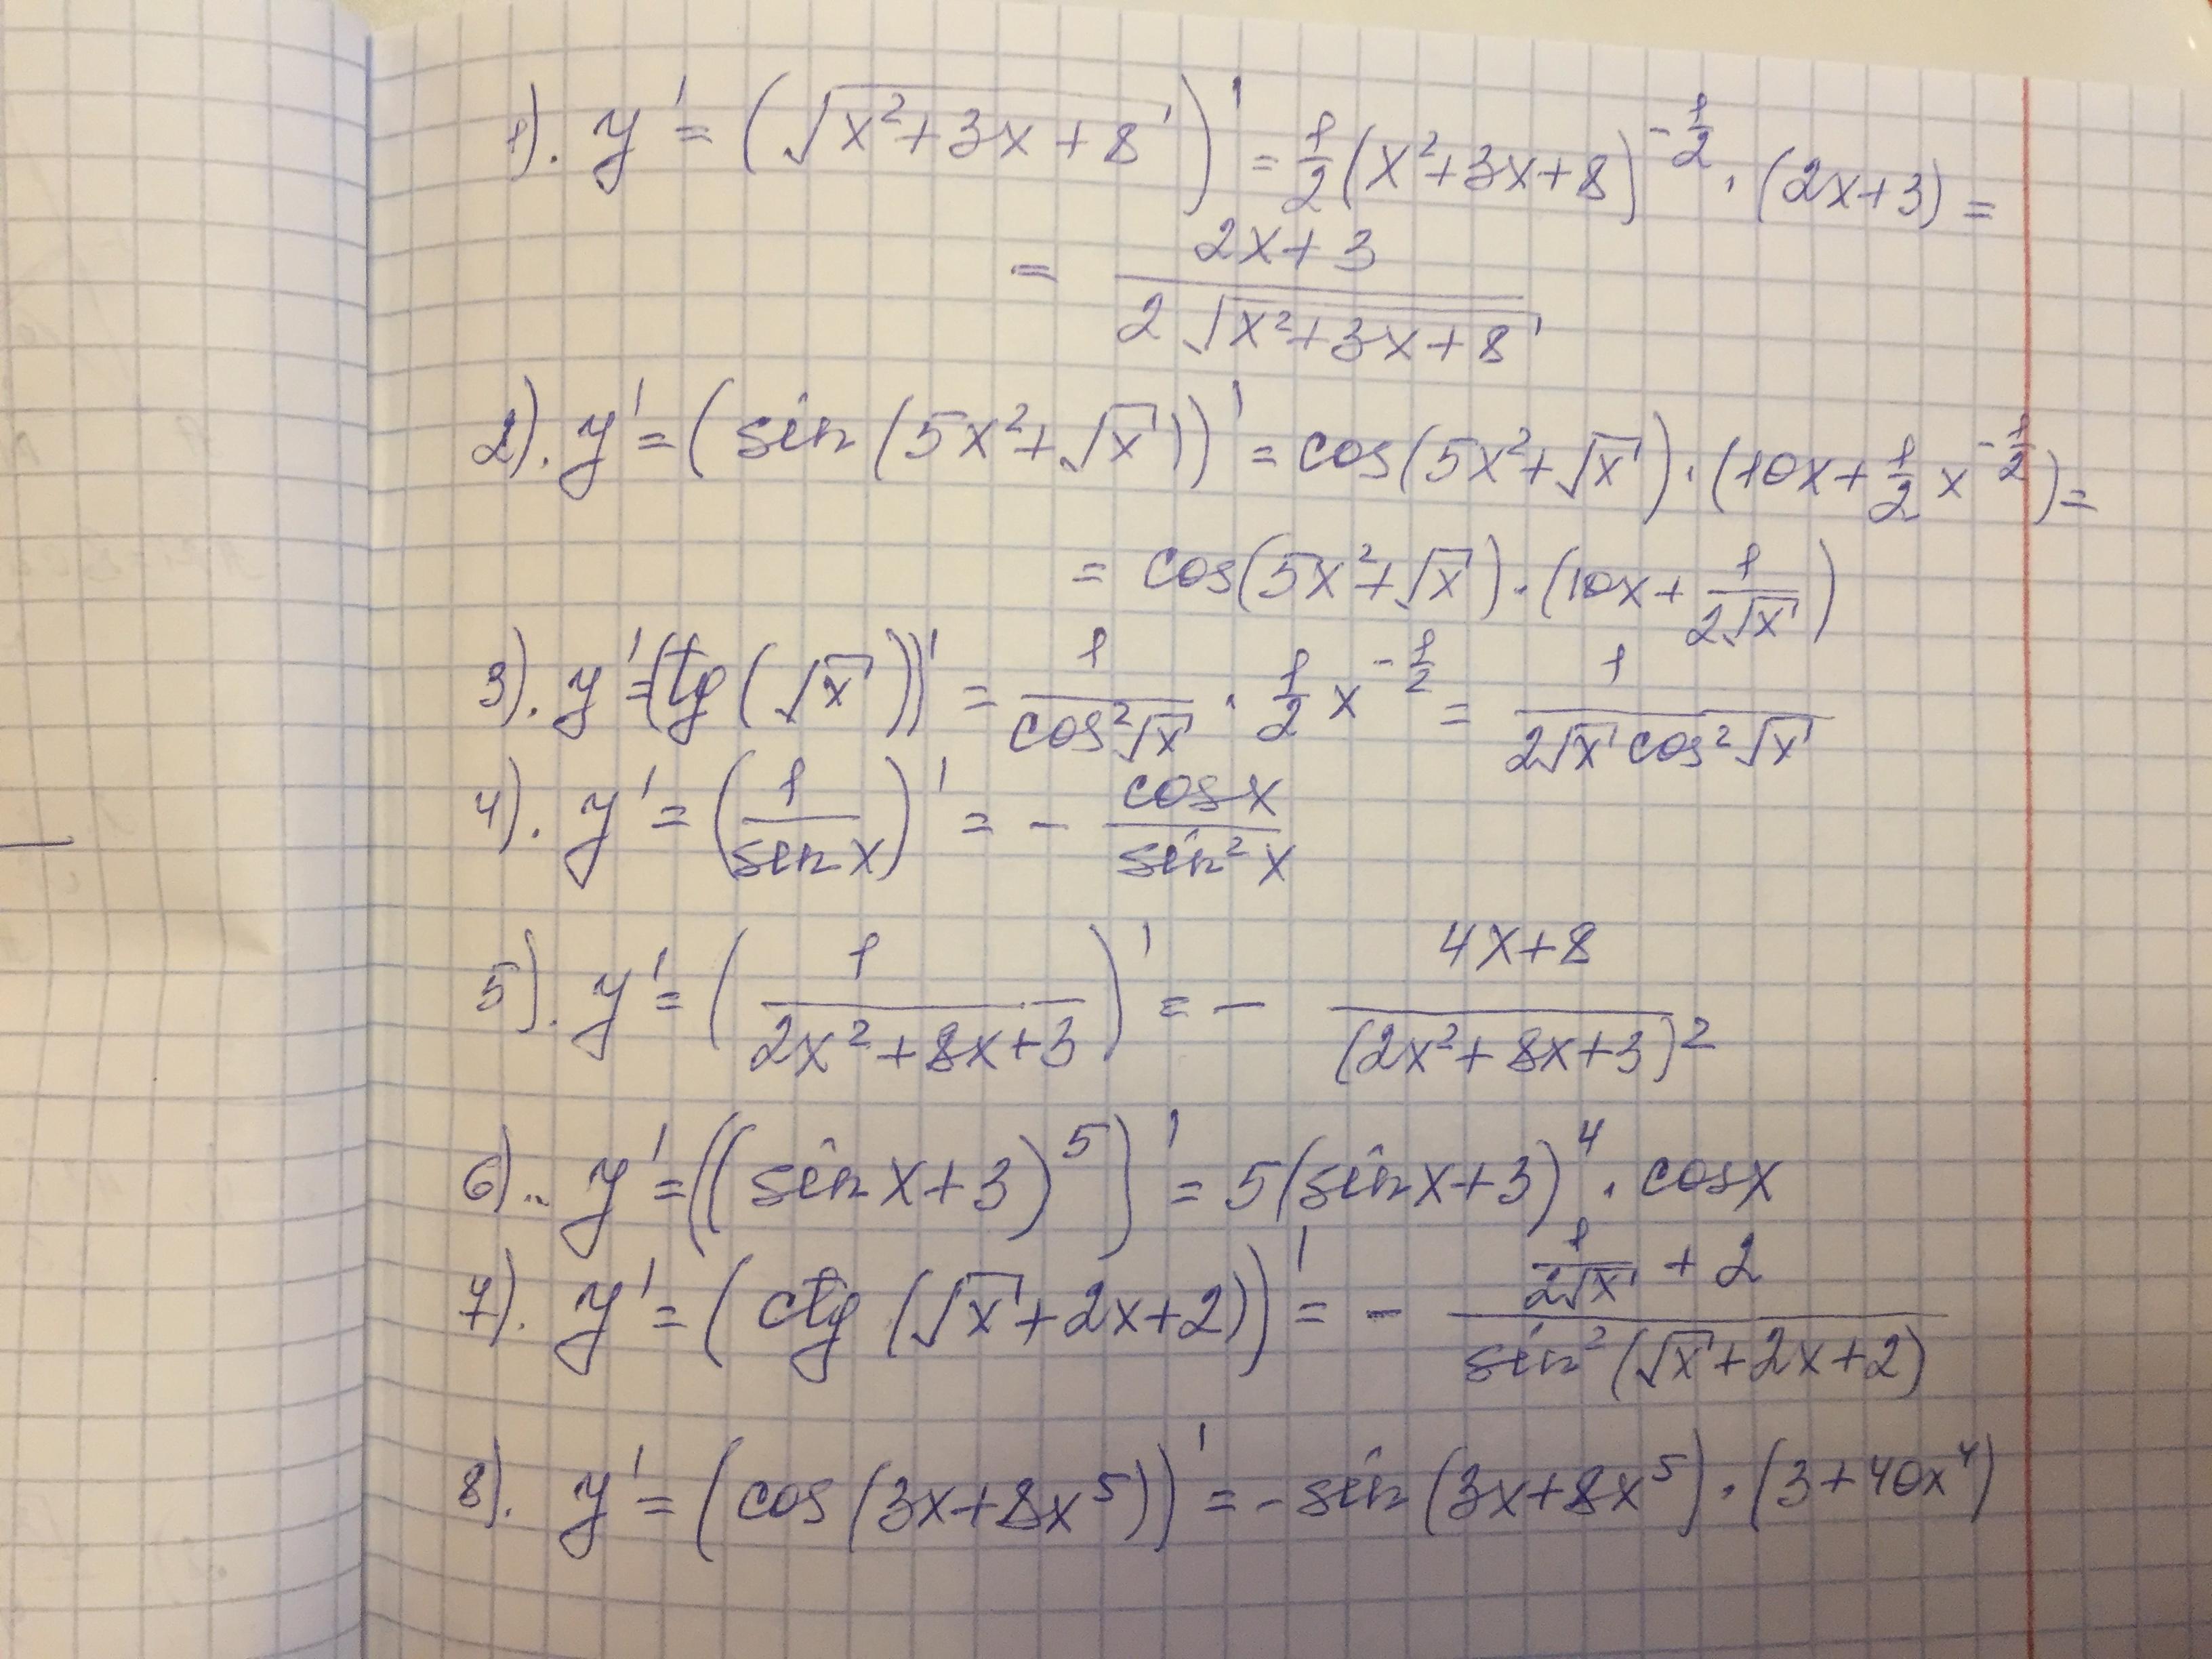 1). y' = (√(x²+3x+8))' = 1/2 (x²+3x+8)^(-1/2) · (2x+3) =
= (2x+3)/(2√(x²+3x+8))
2). y' = (sin(5x²+√x))' = cos(5x²+√x) · (10x+1/2 x^(-1/2)) =
= cos(5x²+√x) · (10x+1/(2√x))
3). y' = (tg(√x))' = 1/(cos²√x) · 1/2 x^(-1/2) = 1/(2√x cos²√x)
4). y' = (1/(sin x))' = - (cos x)/(sin² x)
5). y' = (1/(2x²+8x+3))' = - (4x+8)/((2x²+8x+3)²)
6). y' = ((sin x+3)⁵)' = 5(sin x+3)⁴ · cos x
7). y' = (ctg (√x+2x+2))' = - (1/(2√x) + 2)/(sin² (√x+2x+2))
8). y' = (cos(3x+8x⁵))' = - sin(3x+8x⁵) · (3+40x⁴)